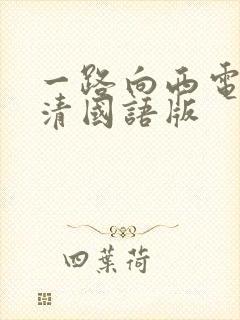 一路向西電
清國語版
四葉荷